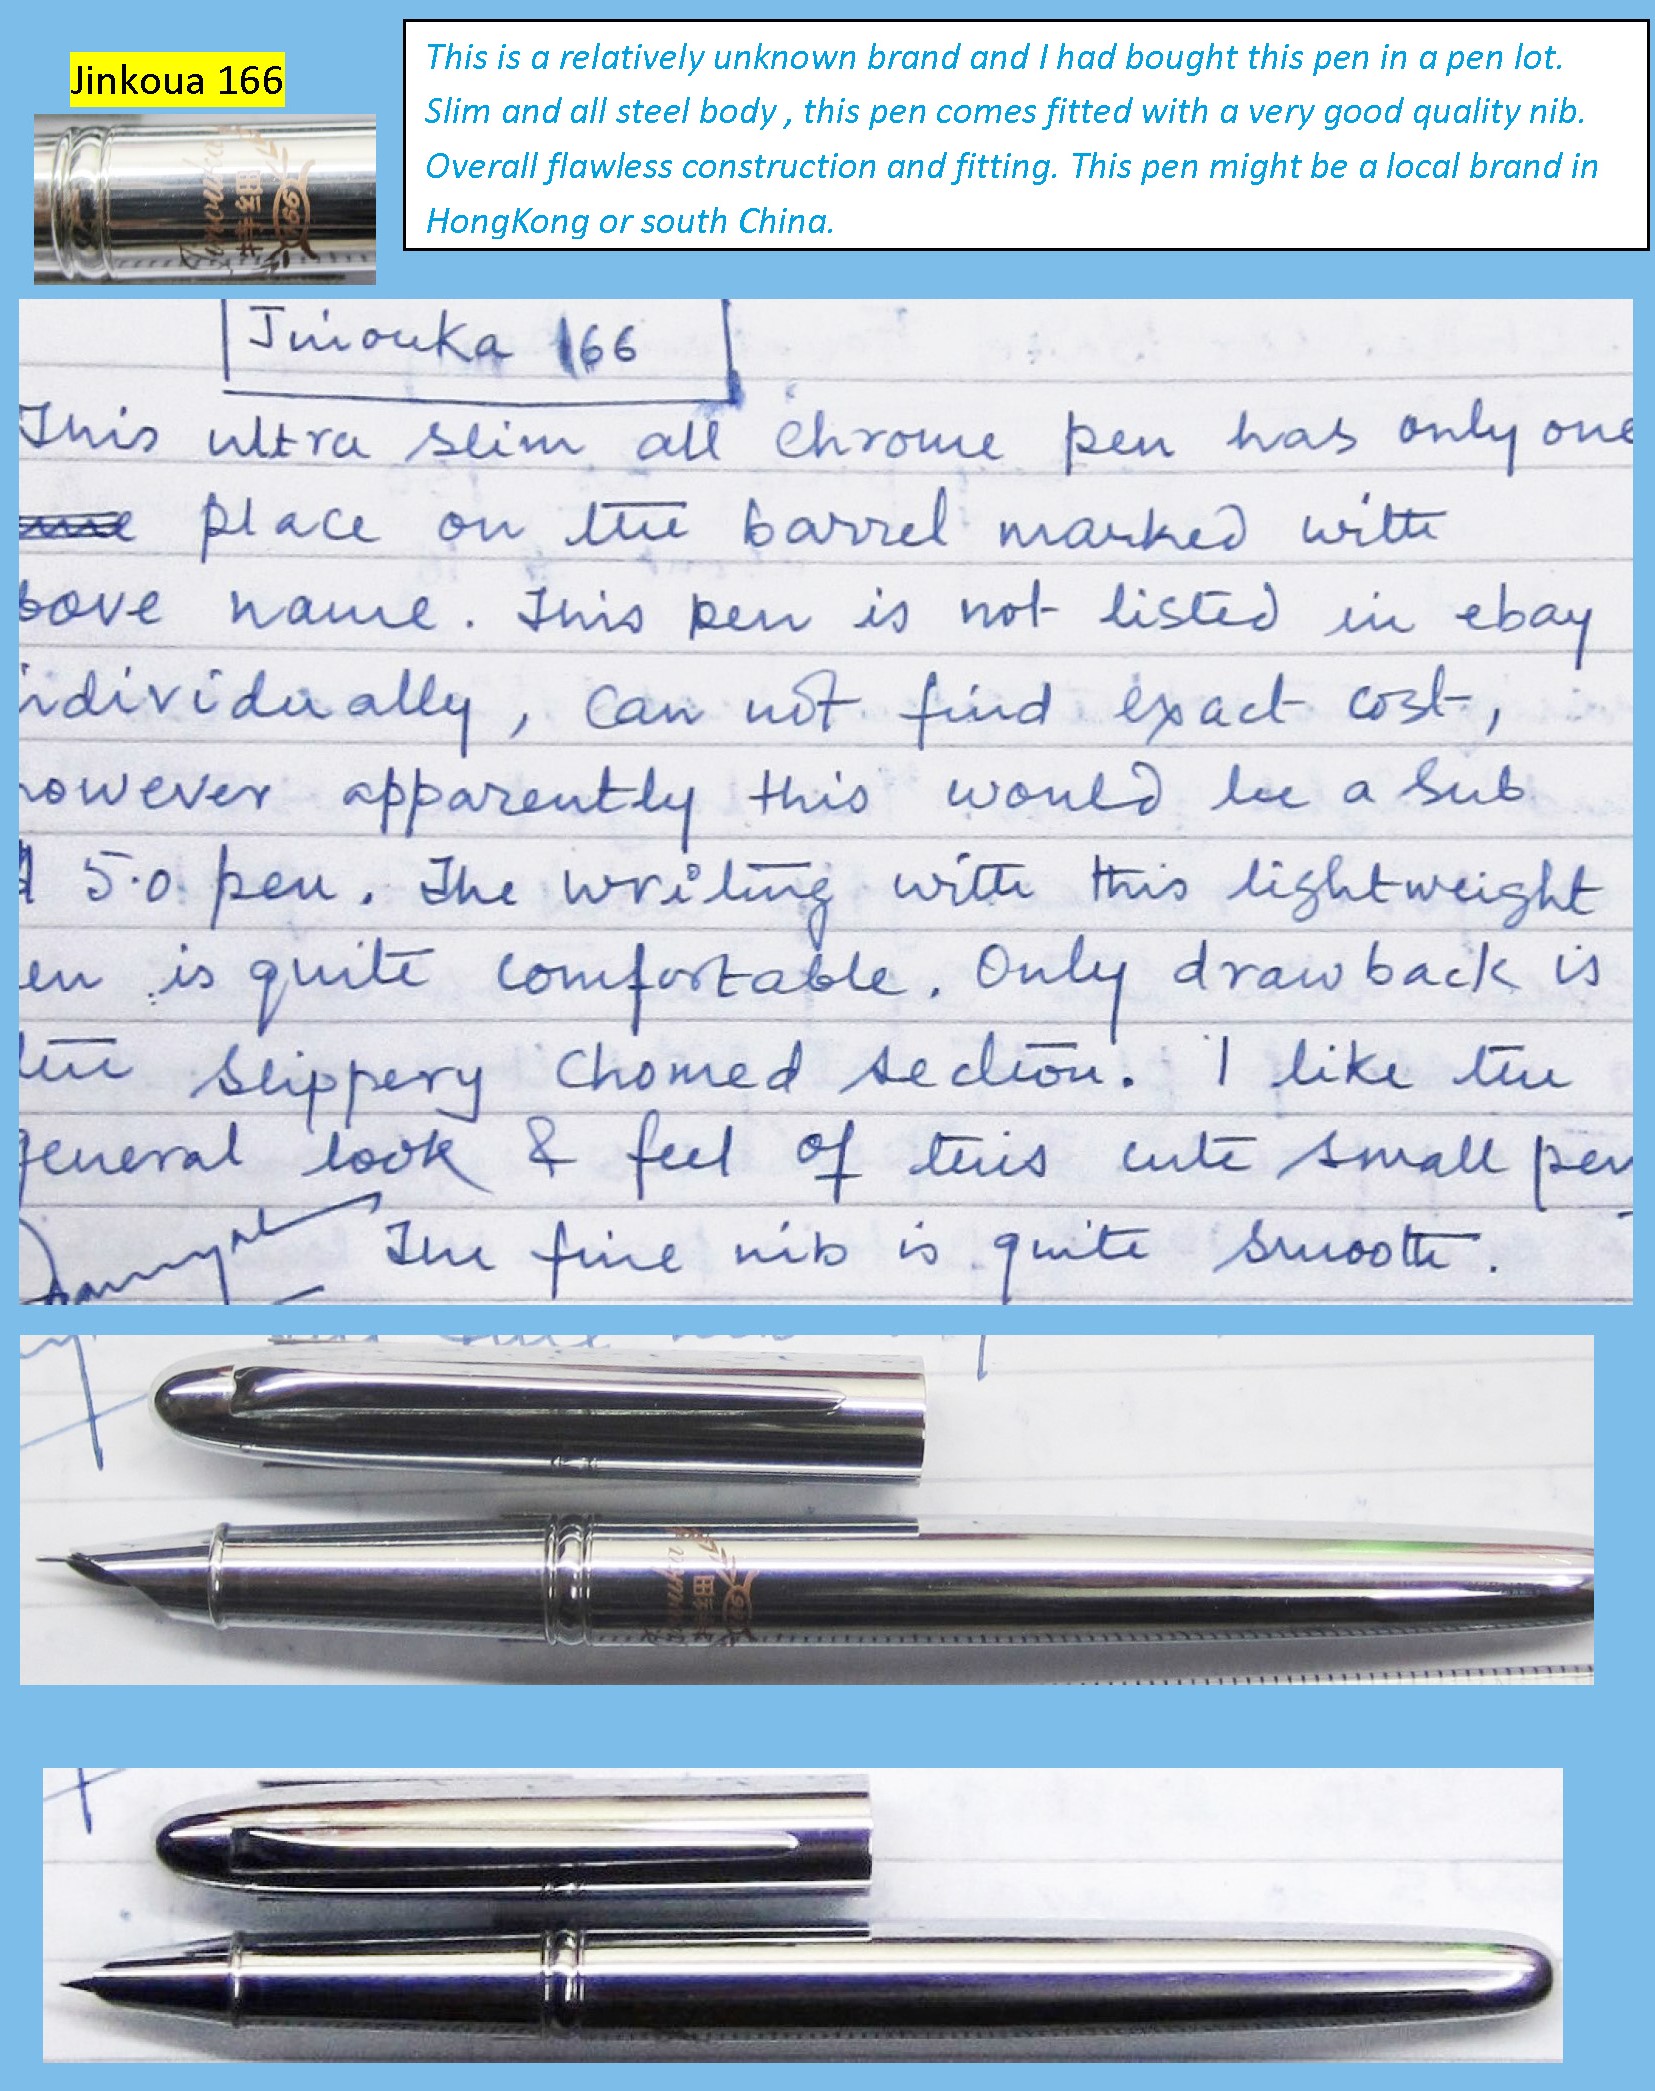 Jinkoua 166
This is a relatively unknown brand and I had bought this pen in a pen lot.
Slim and all steel body , this pen comes fitted with a very good quality nib.
Overall flawless construction and fitting. This pen might be a local brand in
HongKong or south China.
166
Jniouka 166
This ultra slim all chrome pen has only one
place on the barrel marked with
bove name. This pen is not listed in ebay
ndividually, can not find exact cost,
however apparently this would be a sub
$ 5.0 pen. The writing with this lightweight
en is quite comfortable. Only drawback is
the slippery chomed section. I like the
general look & feel of this cute small pen
The fine nib is quite smooth.